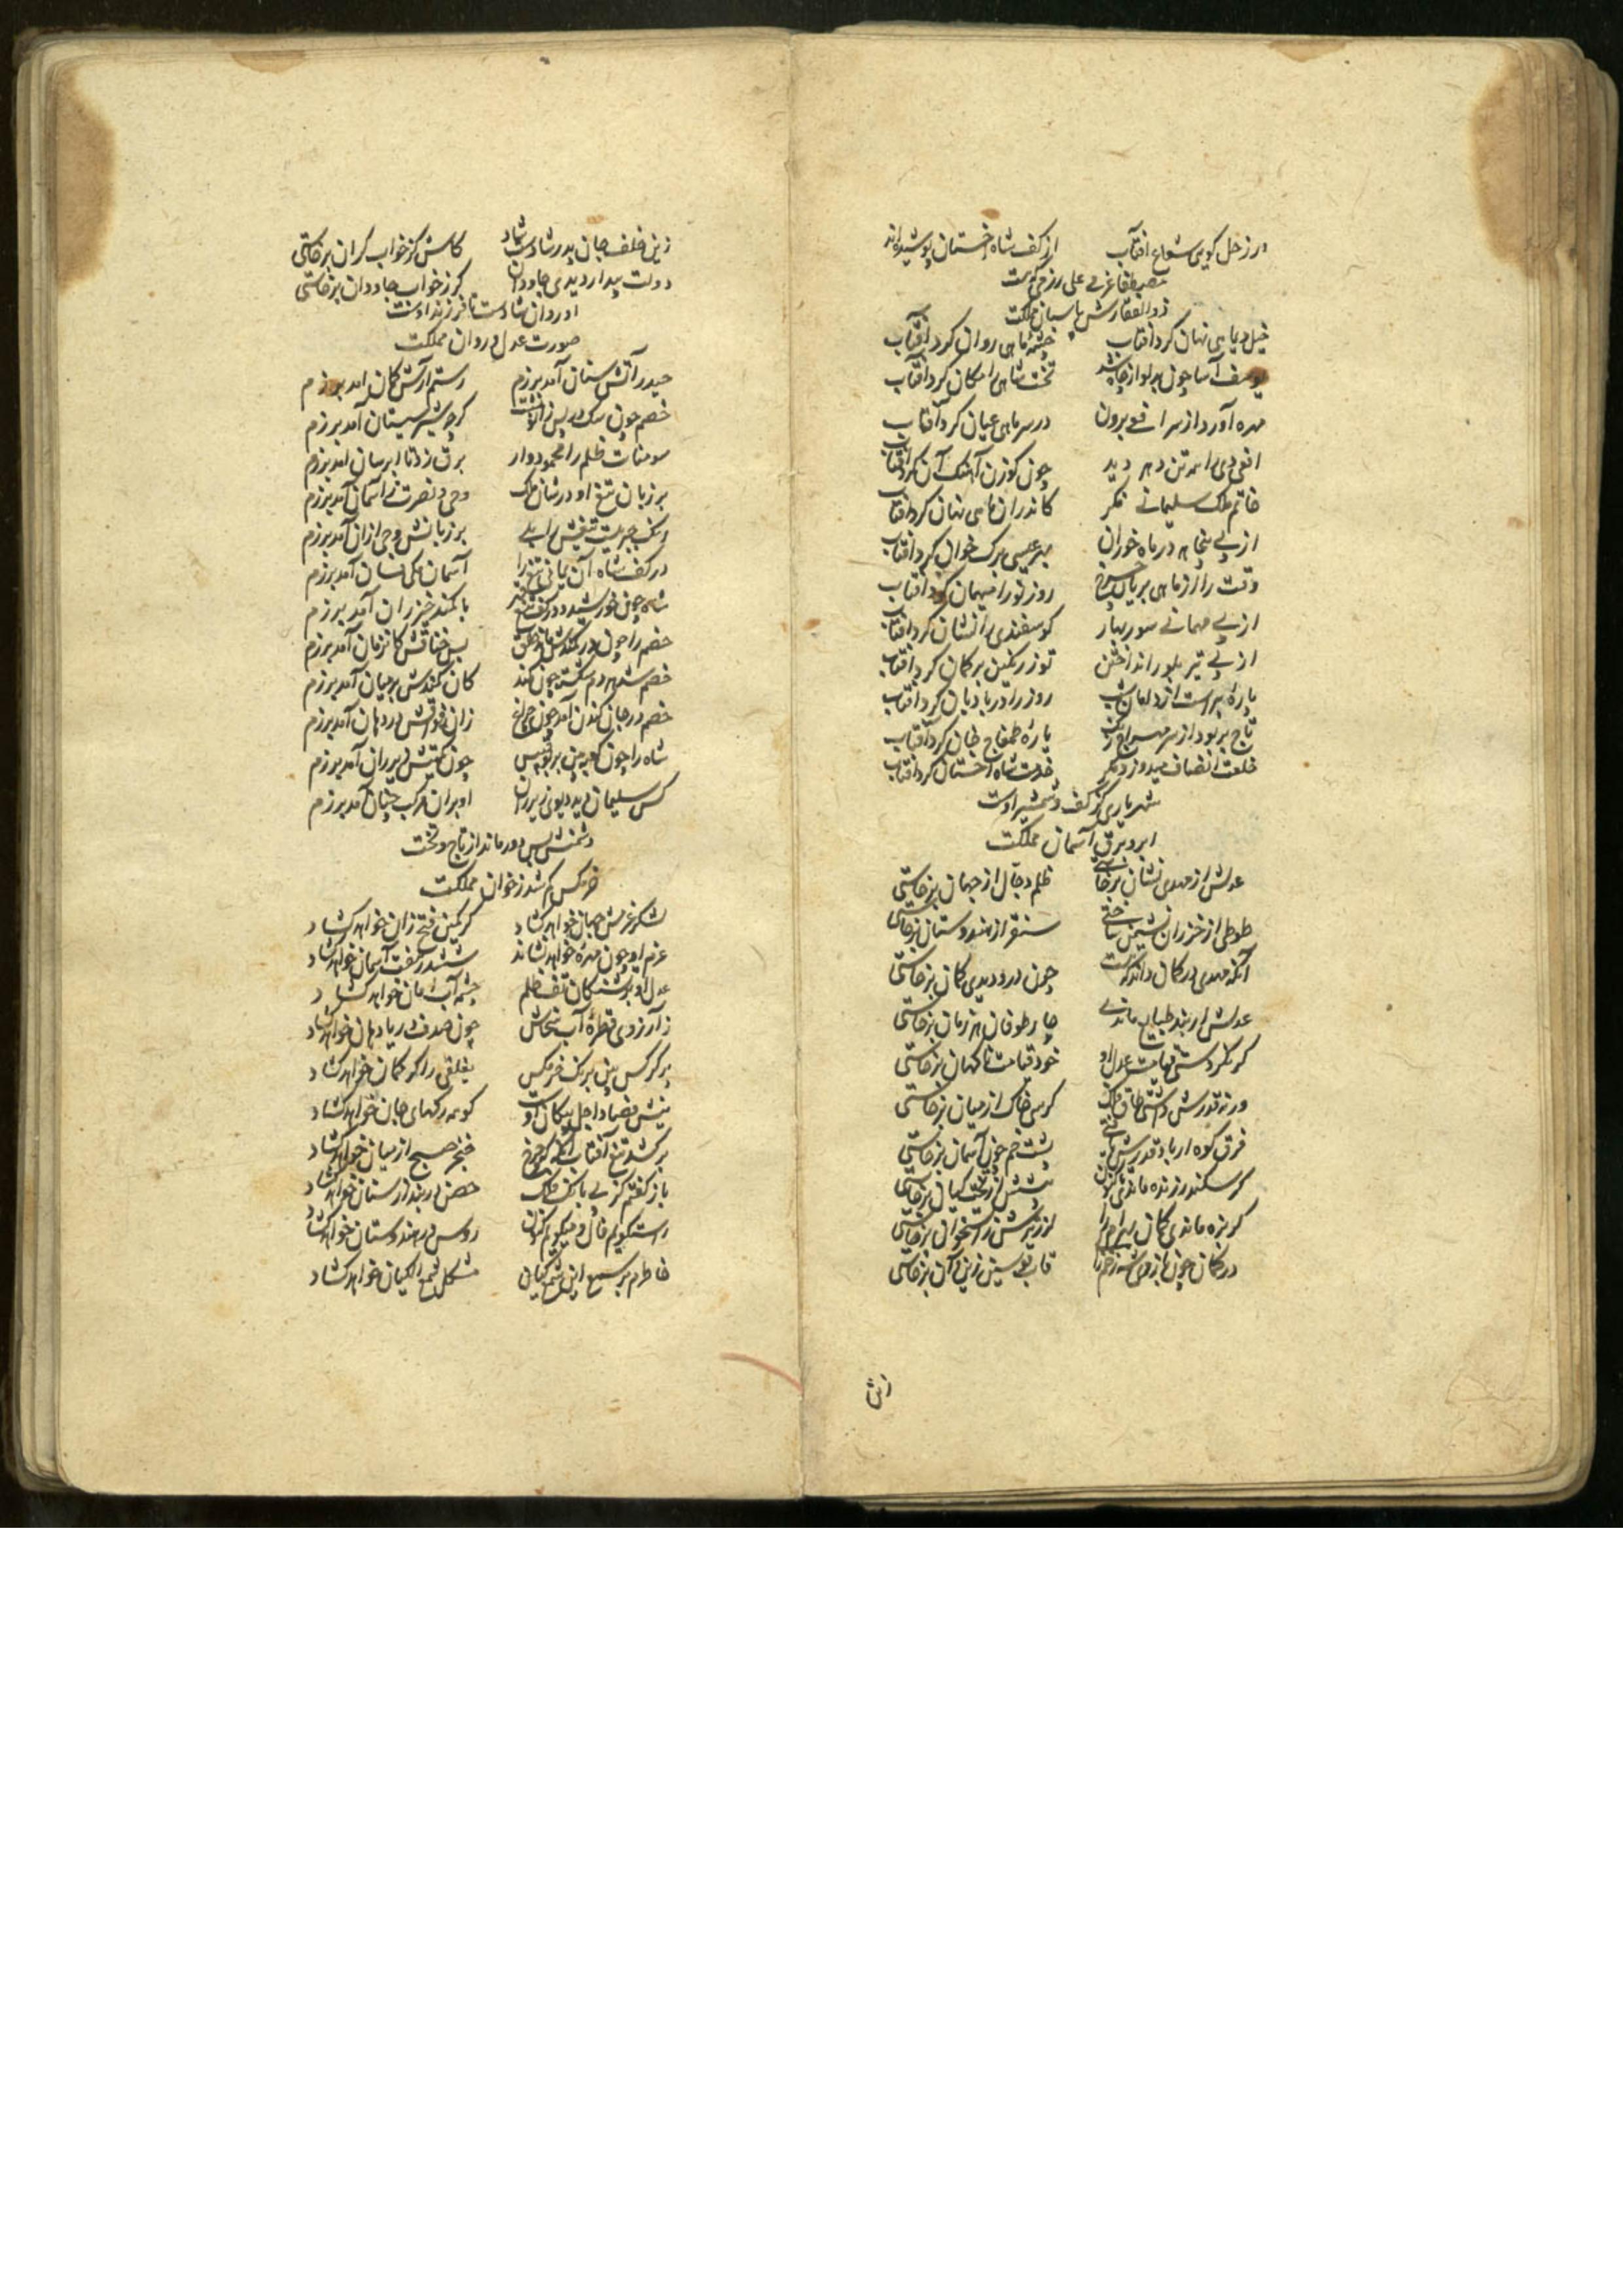 در زحل گویی شعاع افتاب از کف شاه اخستان پوشیده‌اند
مصطفا عزمی علی رزمی که هست
ذوالفقارش پاسبان مملکت
خیل دی ماهی نهان کرد افتاب چشمه ماهی روان کرد افتاب
یوسف آسا چون بدلو از چاه شد تخت شاهی را مکان کرد افتاب
مهره آورد از سر افعی برون در سر ماهی عیان کرد آفتاب
افعی دی را همه تن زهر دید چون گوزن آهنگ آن کرد افتاب
خاتم ملک سلیمانی نگر کاندران ماهی نهان کرد افتاب
از پی پنجاهه در ماه خوران بهر عیسی برگ خوان کرد افتاب
وقت را از ماهی بریان چرخ روز نو را میهمان کرد افتاب
از پی مهمانی سور بهار گوسفندی را نشان کرد افتاب
از پی تیر بلور انداختن توز رنگین بر کمان کرد افتاب
روز را در بادبان کرد افتاب
تاج بربود از سر یاره طمغاج خان کرد آفتاب
خلعت انصاف میدوزد مگر خدمت شاه اخستان کرد افتاب
شهریاری کز کف و شمشیر اوست
ابر و برق آسمان مملکت
عدلش از مهدی نشان برخاستی ظلم دجال از جهان برخاستی
طوطی از خزران نشیمن ساختی سنقر از هندوستان برخاستی
آنکه مهدی در گمان داند که هست چون درو دیدی گمان برخاستی
عدلش ار بند طبایع ماندی چار طوفان هر زمان برخاستی
گر نکردستی قیامت عدل او خود قیامت ناگهان برخاستی
ورنه قدرش داشتی طاق فلک کرسی خاک از میان برخاستی
فرق کوه ار باد قدرش یافتی پشت خم چون آسمان برخاستی
گر سکندر زنده ماندی تاکنون پیشش از تخت کیان برخاستی
لرز تیرش ز استخوان برخاستی
قاب قوسین زین و آن برخاستی
زین
زین خلف جان پدر شادست شاد کاش کز خواب گران برخاستی
دولت بیدار دیدی جاودان گر ز خواب جاودان برخاستی
او روان شادست تا فرزند اوست
صورت عدل و روان مملکت
حیدر آتش سنان آمد برزم رستم آرش کمان آمد برزم
خصم چون سگ در پس زانو نشست کو چو شیر سیستان آمد برزم
سومنات ظلم را محمود وار برق زد تا ابرسان آمد برزم
بر زبان تیغ او در شان ملک وحی و نصرت ز آسمان آمد برزم
بر زبانش وحی ازان آمد برزم
در کف شاه آن یمانی تیغ را آسمان گویی فسان آمد برزم
شاه چون خورشید و در کف تیغ با کمند خیزران آمد برزم
خصم را چون در کمندش ماند حلق بس خناقش کان زمان آمد برزم
خصم شد پر دم شکسته چون کمند کان کمندش بر میان آمد برزم
خصم در جان کندن آمد چون چراغ زان فواقش در دهان آمد برزم
شاه را چون کعبه بین بر بوقبیس چون تکینش زیر ران آمد برزم
کس سلیمان دید دیوی زیر ران او بران مرکب چنان آمد برزم
دشمنش بس دور ماند از تاج و تخت
خرمگس گم شد ز خوان مملکت
لشکر عزمش جهان خواهد گشاد کز کمین فتح زان خواهد گشاد
عزم او چون مهره خواهد نشاند ششدر هفت آسمان خواهد گشاد
عدل او بر تشنگان تف ظلم چشمه آب امان خواهد گشاد
ز آرزوی قطره آب سخاش چون صدف دریا دهان خواهد گشاد
پر کرکس بین برنگ خرمگس یغلقی را کز کمان خواهد گشاد
نیش فصاد اجل پیکان اوست کو همه رگهای جان خواهد گشاد
بر کشد تیغ آفتاب خنجر صبح از میان خواهد گشاد
باز گفتم کز پی بانگ فلک حصن دربند ارسنان خواهد گشاد
راست گویم فال و میگویم کزان روس در هندوستان خواهد گشاد
خاطرم بر سمع این شمع کیان مشکل سمع الکیان خواهد گشاد